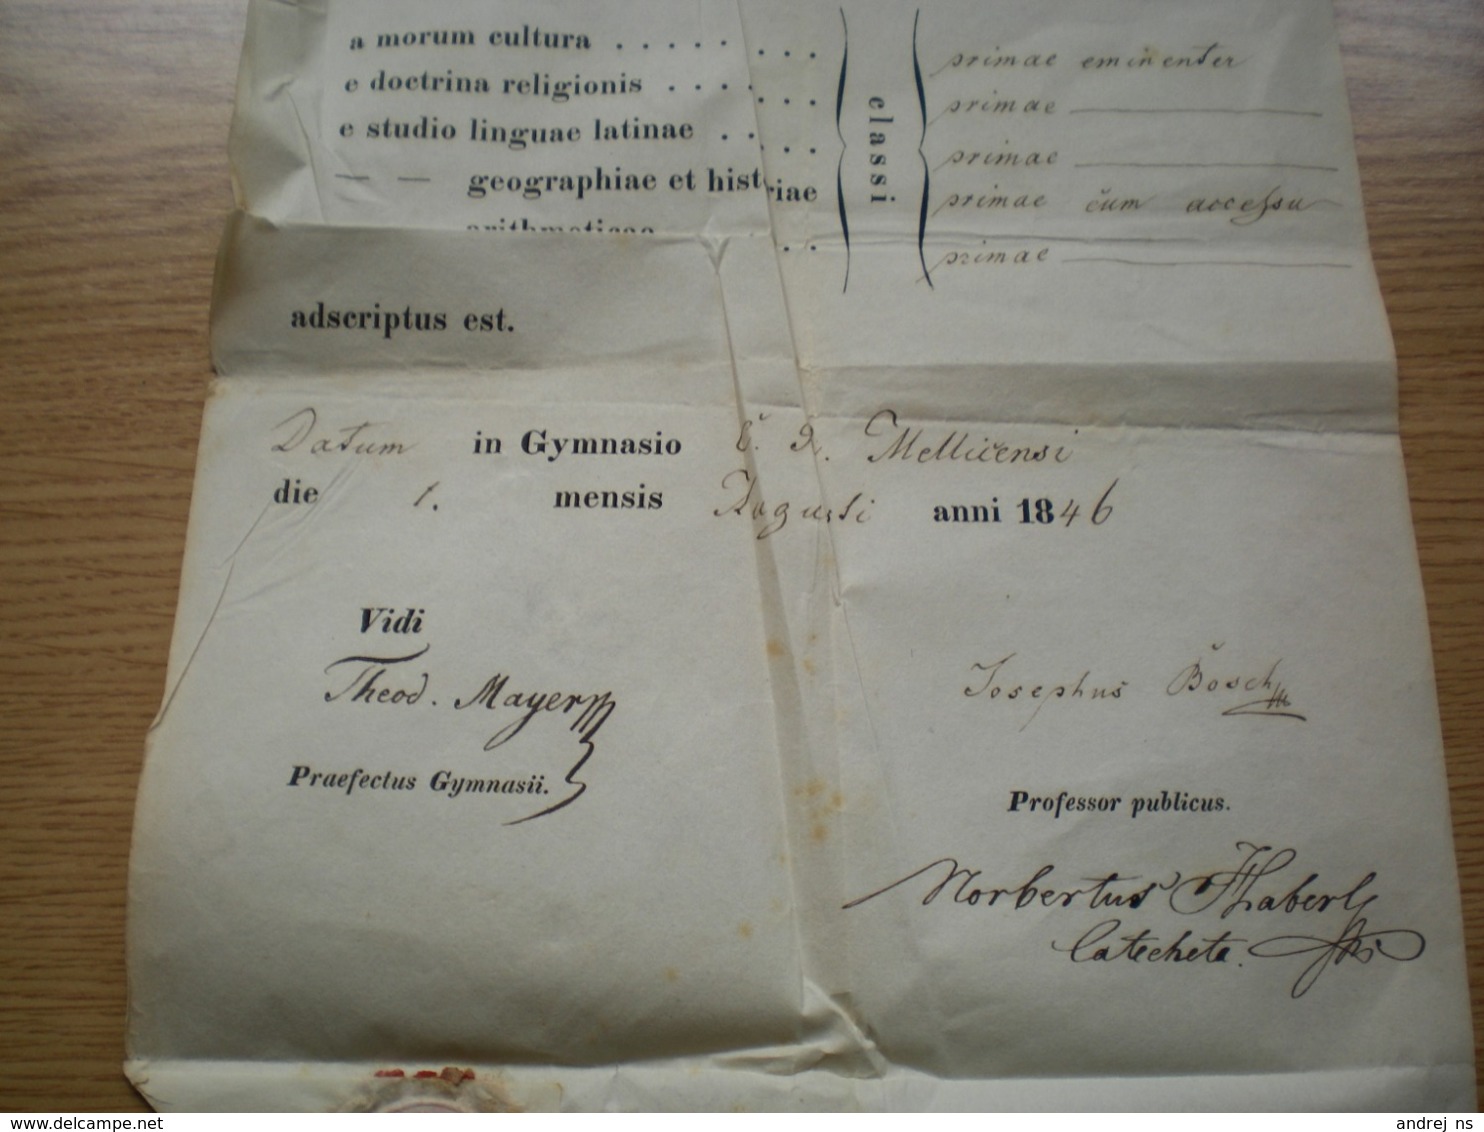 a morum cultura . . . . . . . . . primae eminenter
e doctrina religionis . . . . . . . primae
e studio linguae latinae . . . . . primae
— — geographiae et historiae primae cum accessu
arithmeticae . . primae
classi
adscriptus est.
Datum in Gymnasio Mellicensi
die 1. mensis Augusti anni 1846
Vidi
Theod. Mayer
Praefectus Gymnasii.
Josephus Bosch
Professor publicus.
Norbertus Haberl
Catecheta.
andrej ns